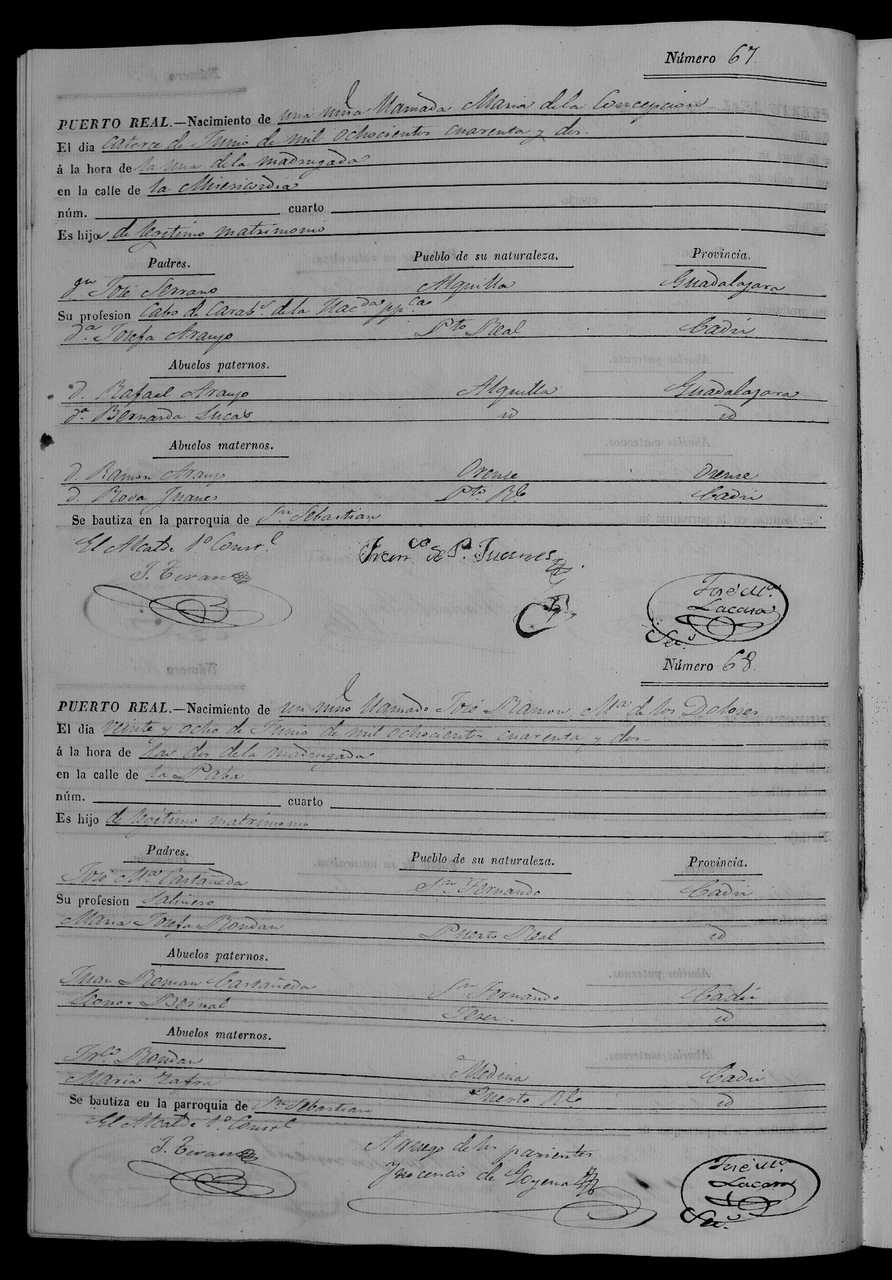 Número 67
PUERTO REAL.—Nacimiento de una niña llamada Maria de la Concepcion
El dia catorce de Junio de mil ochocientos cuarenta y dos.
á la hora de la una de la madrugada
en la calle de la Misericordia
núm. cuarto
Es hija de legitimo matrimonio
Padres. Pueblo de su naturaleza. Provincia.
José Serrano Alquilla Guadalajara
Su profesion Cabo de Carabs. de la Hacda. ppca.
da. Josefa Araujo Pto. Real Cadiz
Abuelos paternos.
d. Rafael Araujo Alquilla Guadalajara
da. Bernarda Lucas id id
Abuelos maternos.
d. Ramon Araujo Orense Orense
d. Rosa Juanes Pto. Rl. Cadiz
Se bautiza en la parroquia de Sn. Sebastian
El Alcalde 1o. Constl.
Franco. de Pa.
J. Teran
José Ma.
Lacasa
Secro.
Número 68
PUERTO REAL.—Nacimiento de un niño llamado José Ramon Ma. de los Dolores
El dia veinte y ocho de Junio de mil ochocientos cuarenta y dos.
á la hora de las dos de la madrugada
en la calle de la Palma
núm. cuarto
Es hijo de legitimo matrimonio
Padres. Pueblo de su naturaleza. Provincia.
José Ma. Castañeda Sn. Fernando Cadiz
Su profesion Salinero
Maria Josefa Rondan Puerto Real id
Abuelos paternos.
Juan Roman Castañeda Sn. Fernando Cadiz
Leonor Bernal Jerez id
Abuelos maternos.
Frco. Rondan Medina Cadiz
Maria Zafra Puerto Rl. id
Se bautiza en la parroquia de Sn. Sebastian
El Alcalde 1o. Constl.
A ruego de los parientes
J. Teran
Inocencio de Goyena
José Ma.
Lacasa
Secro.